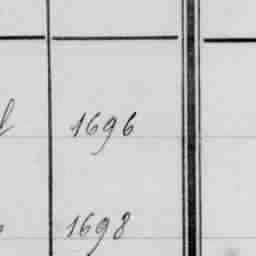 1696
1698